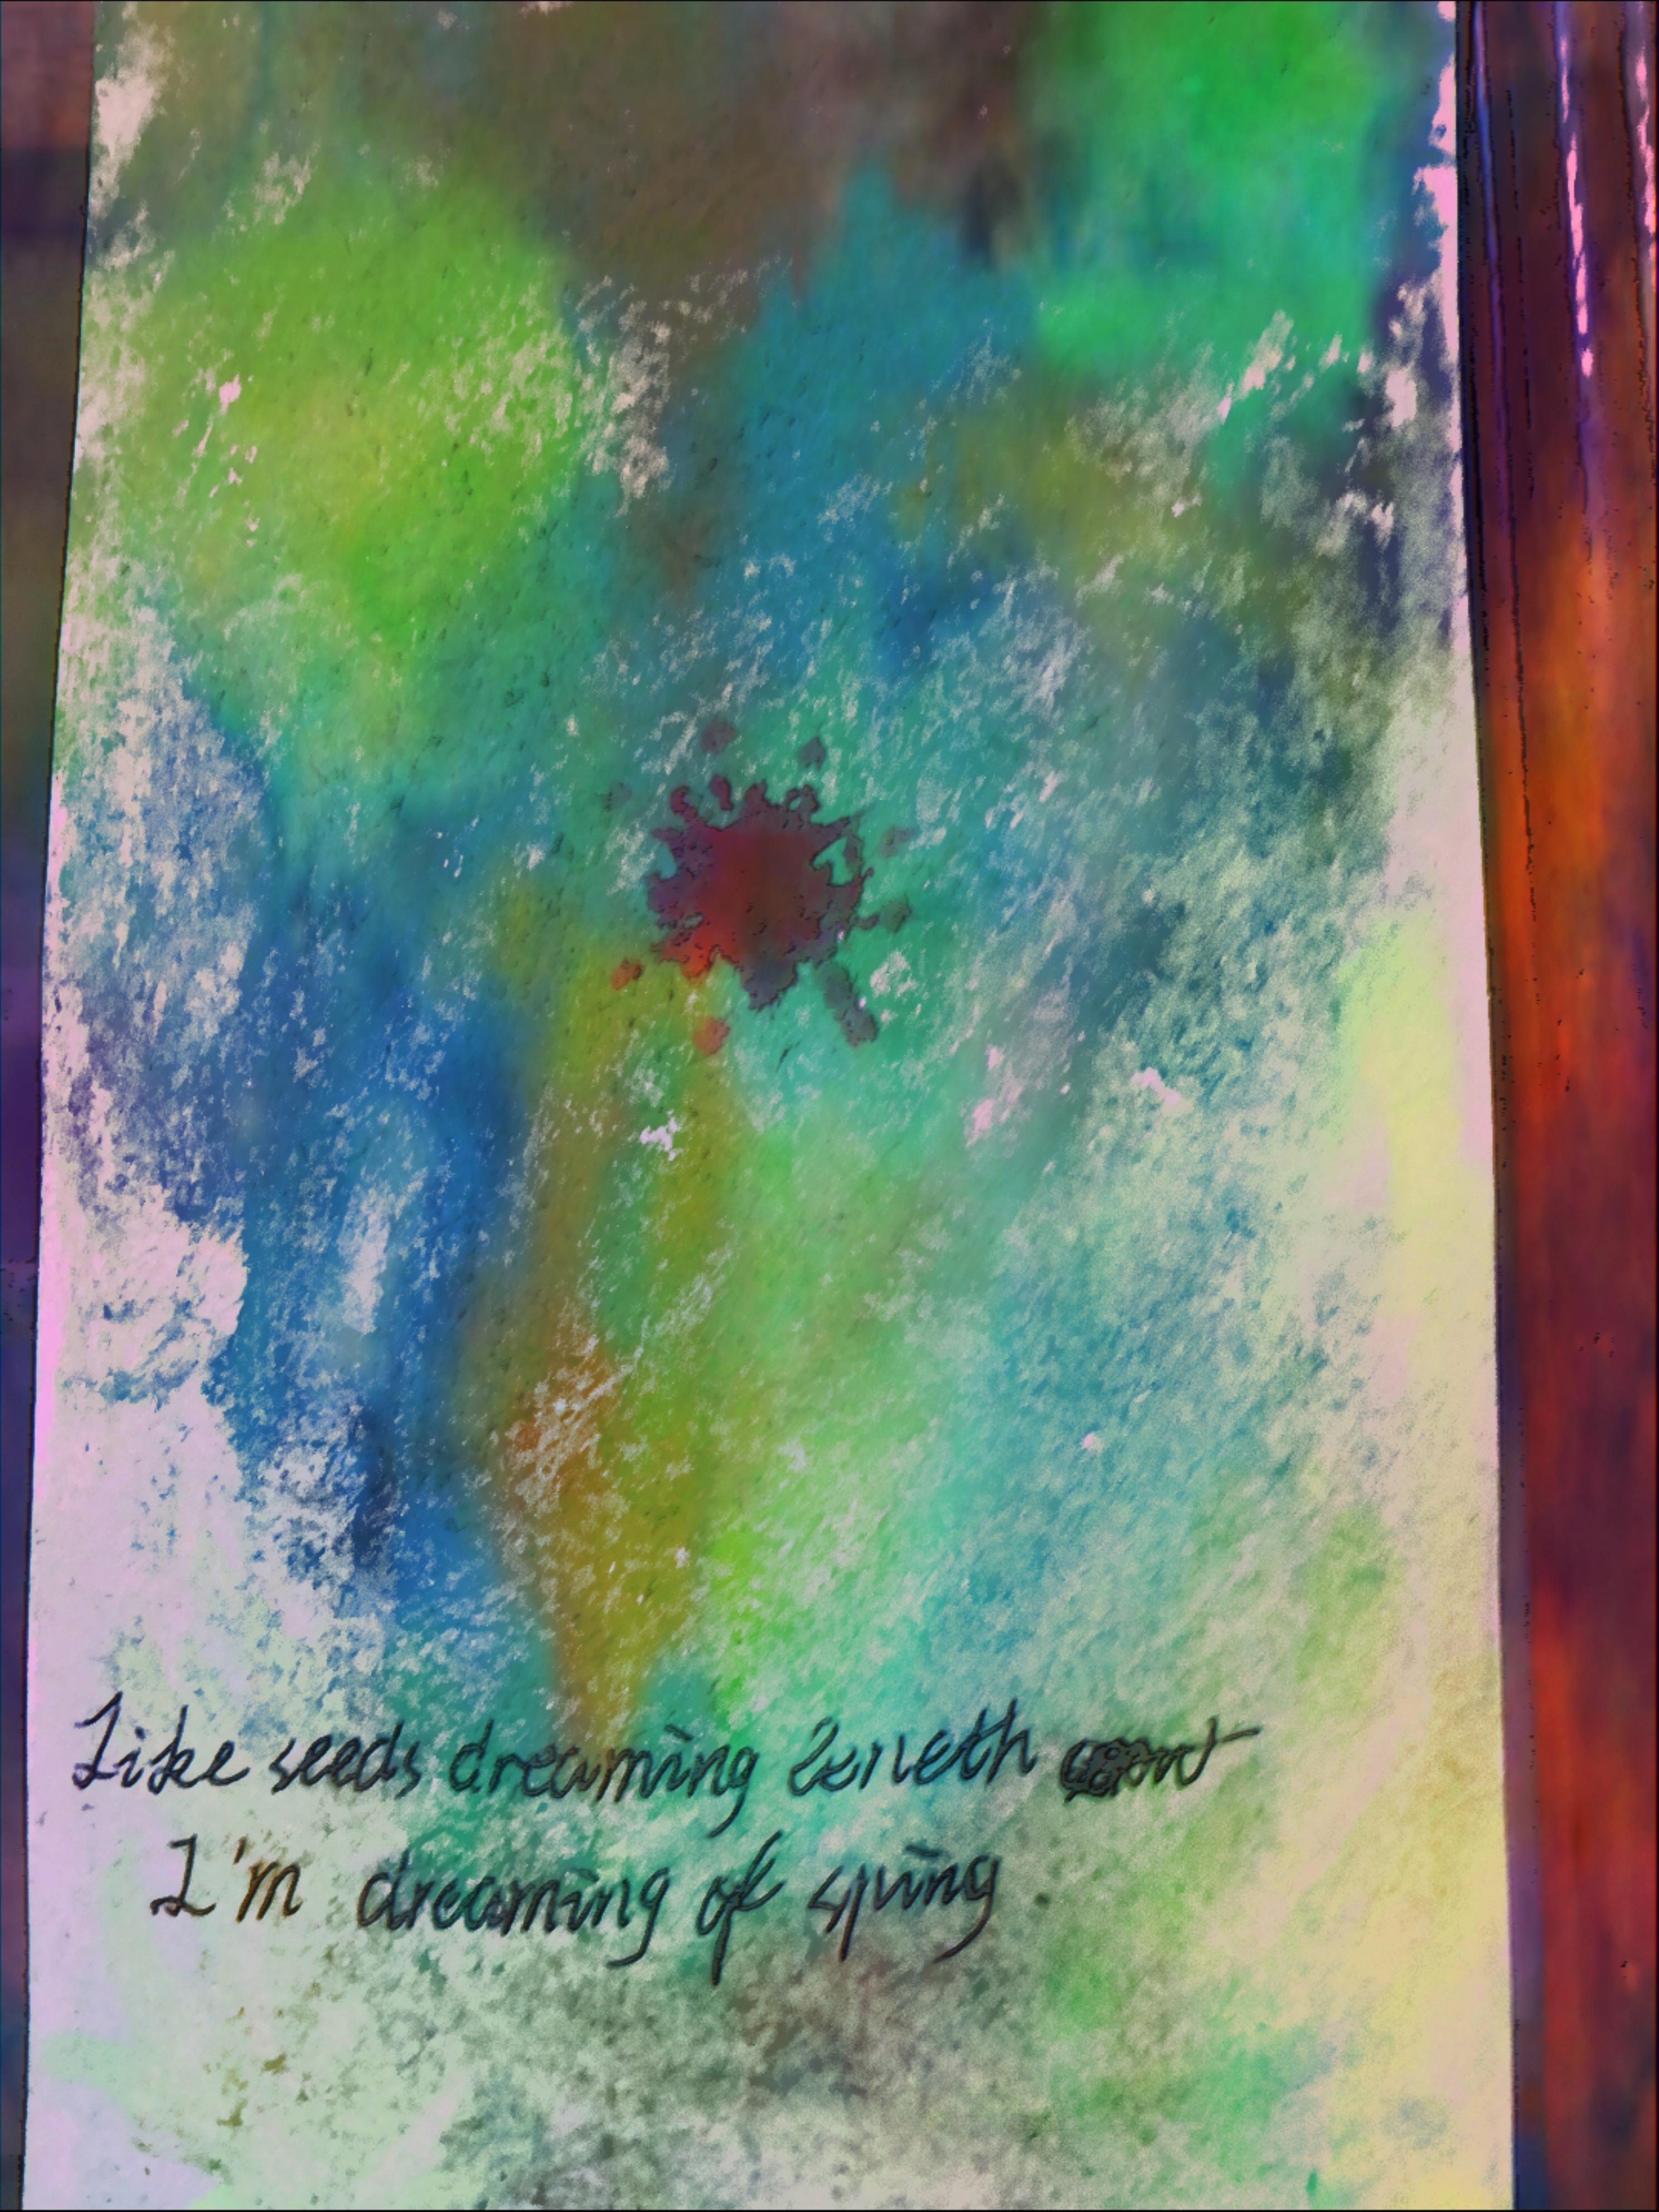 Like seeds dreaming beneth
I'm dreaming of spring